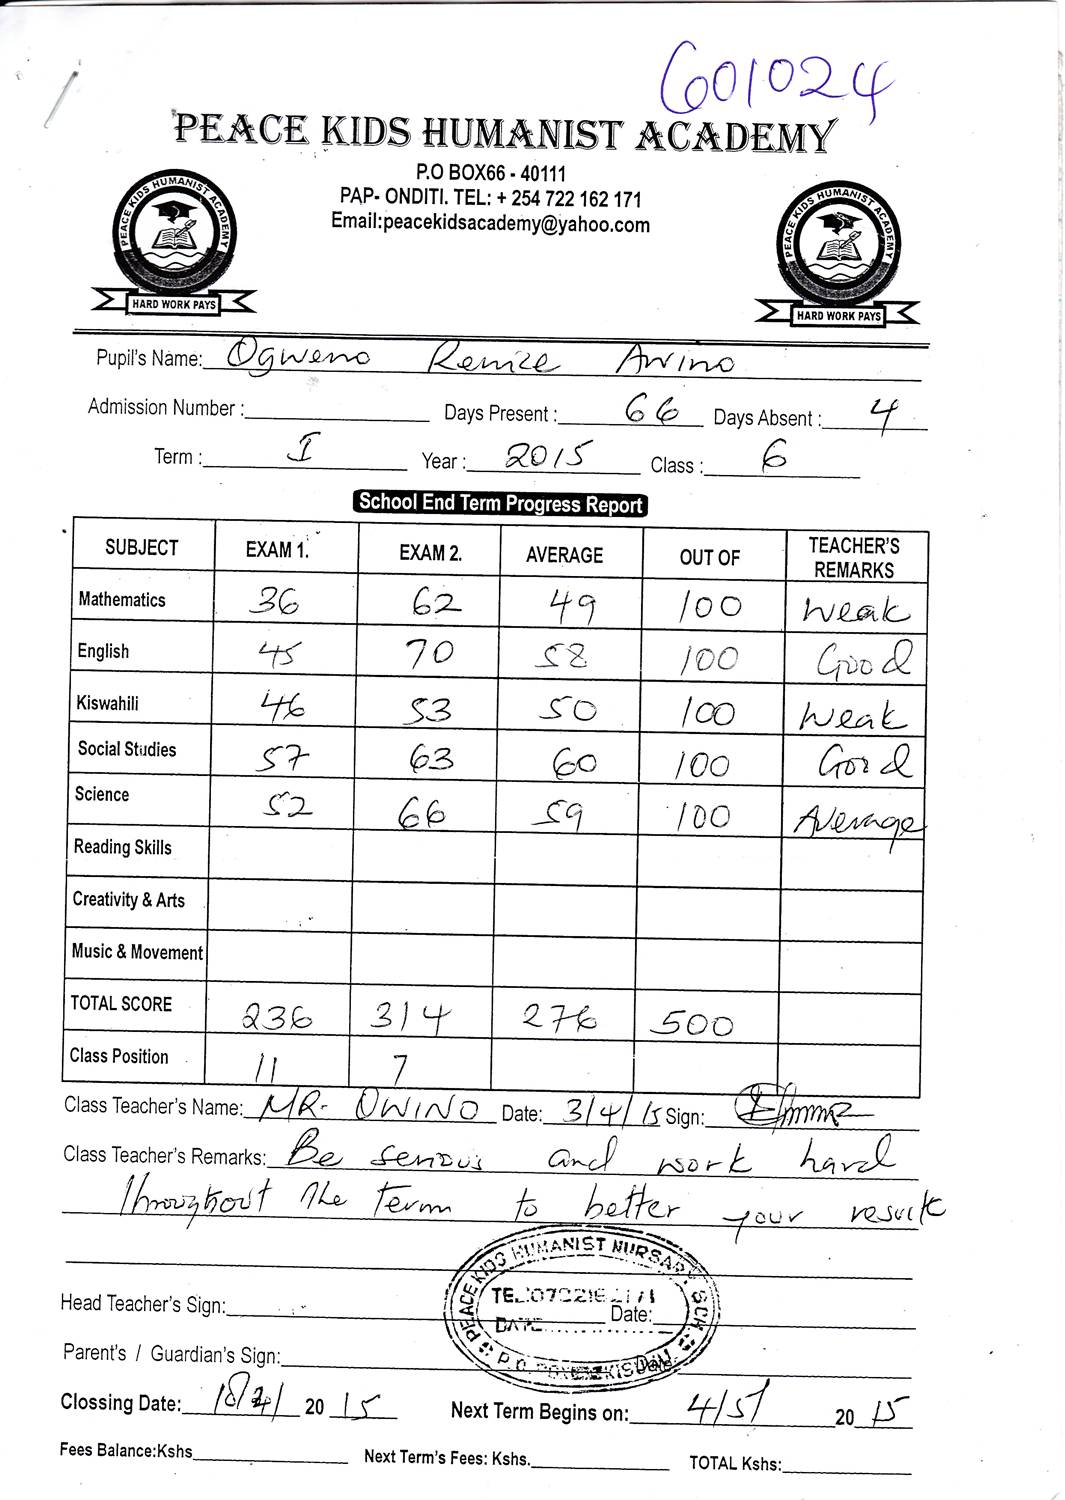 601024
PEACE KIDS HUMANIST ACADEMY
P.O BOX66 - 40111
PAP- ONDITI. TEL: + 254 722 162 171
Email:peacekidsacademy@yahoo.com
PEACE KIDS HUMANIST ACADEMY
HARD WORK PAYS
PEACE KIDS HUMANIST ACADEMY
HARD WORK PAYS
Pupil's Name: Ogweno Renize Awino
Admission Number : Days Present : 66 Days Absent : 4
Term : I Year : 2015 Class : 6
School End Term Progress Report
SUBJECT EXAM 1. EXAM 2. AVERAGE OUT OF TEACHER'S REMARKS
Mathematics 36 62 49 /100 Weak
English 45 70 58 /100 Good
Kiswahili 46 53 50 /100 Weak
Social Studies 57 63 60 /100 Good
Science 52 66 59 /100 Average
Reading Skills
Creativity & Arts
Music & Movement
TOTAL SCORE 236 314 276 500
Class Position 11 7
Class Teacher's Name: MR. OWINO Date: 3/4/15 Sign:
Class Teacher's Remarks: Be serious and work hard
throughout the term to better your result
PEACE KIDS HUMANIST NURSARY SCH.
Head Teacher's Sign: Date:
DATE
Parent's / Guardian's Sign: Date:
Clossing Date: 20 15 Next Term Begins on: 4/5/ 20 15
Fees Balance:Kshs Next Term's Fees: Kshs. TOTAL Kshs: